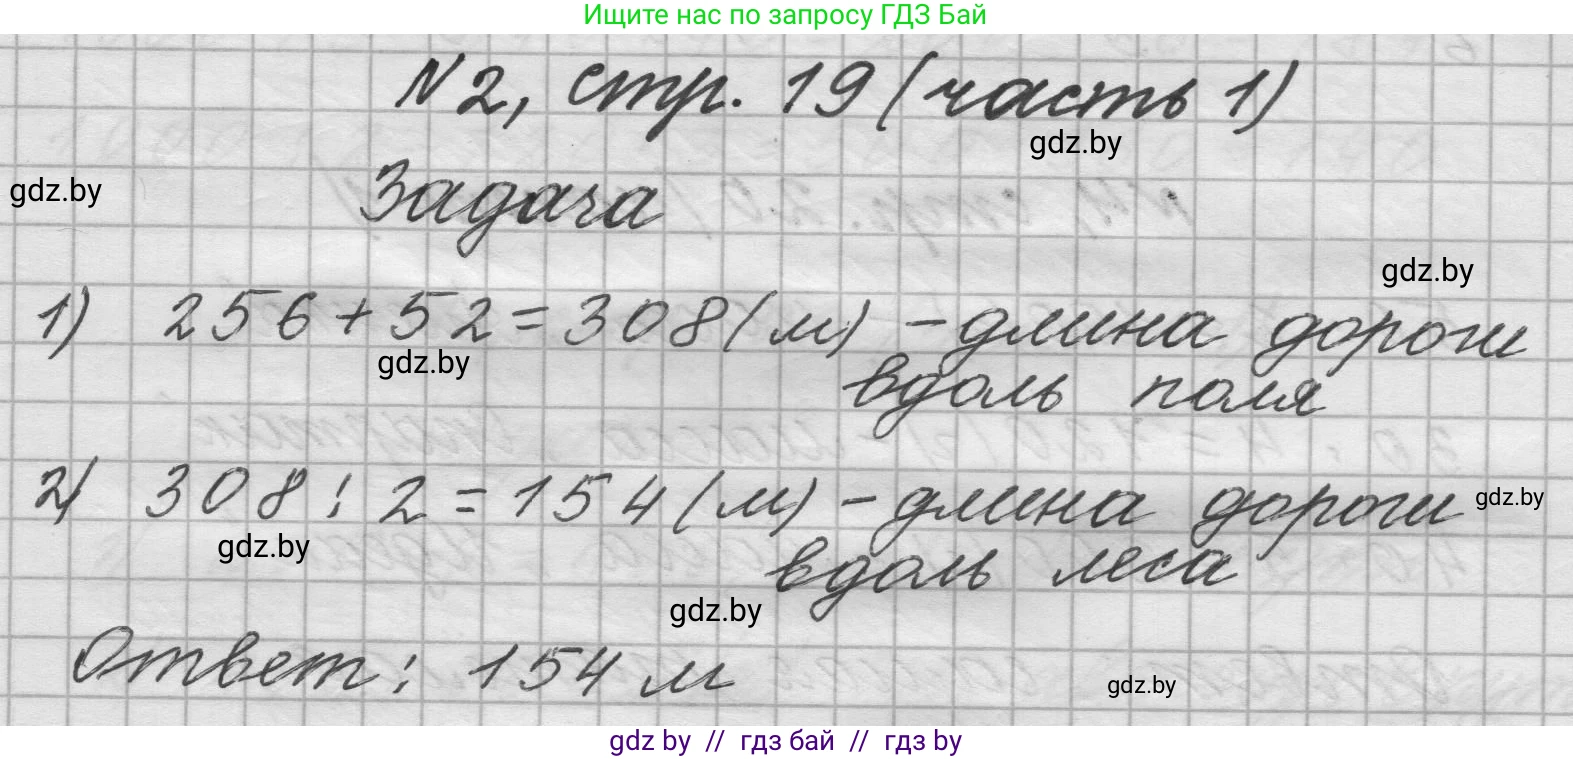 Ищите нас по запросу ГДЗ Бай
N 2, стр. 19 (часть 1)
gdz.by
gdz.by
Задача
gdz.by
1) 256 + 52 = 308 (м) - длина дороги
gdz.by
вдоль поля
2) 308 : 2 = 154 (м) - длина дороги
gdz.by
gdz.by
вдоль леса
gdz.by
Ответ: 154 м
gdz.by
gdz by // гдз бай // гдз by